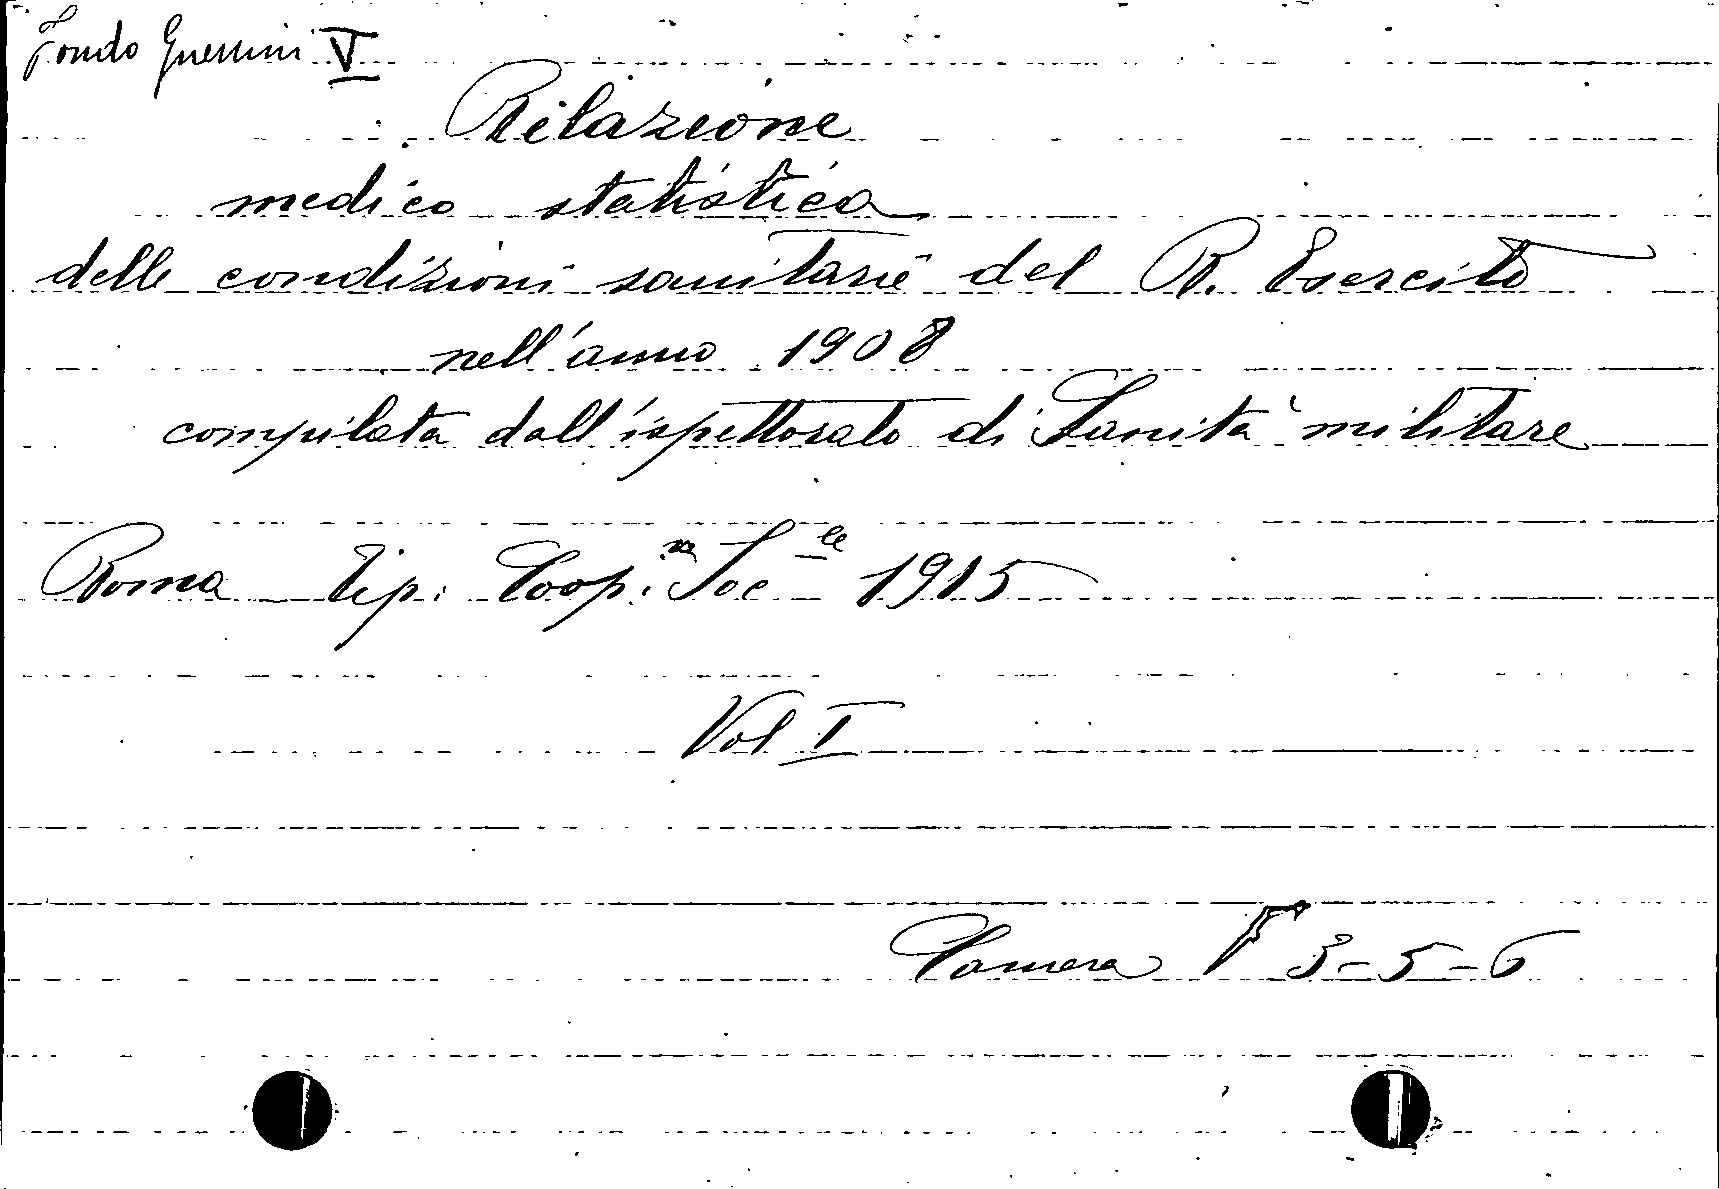 Fondo Guerrini V
Rilazione
medico statistica
delle condizioni sanitarie del R. Esercito
nell'anno 1908
compilata dall'ispettorato di Sanità militare
Roma Tip: Coop:va Soc le 1915
Vol I
Camera F 3-5-6